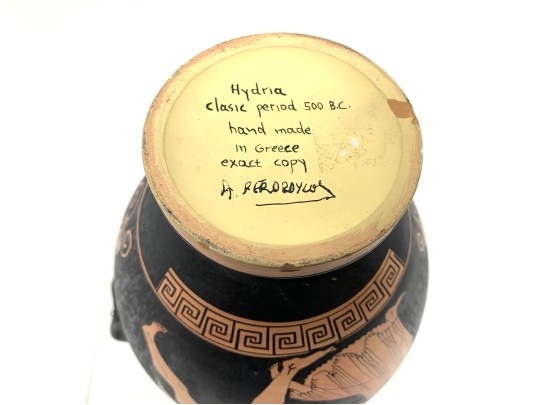 Hydria
clasic period 500 B.C.
hand made
in Greece
exact copy